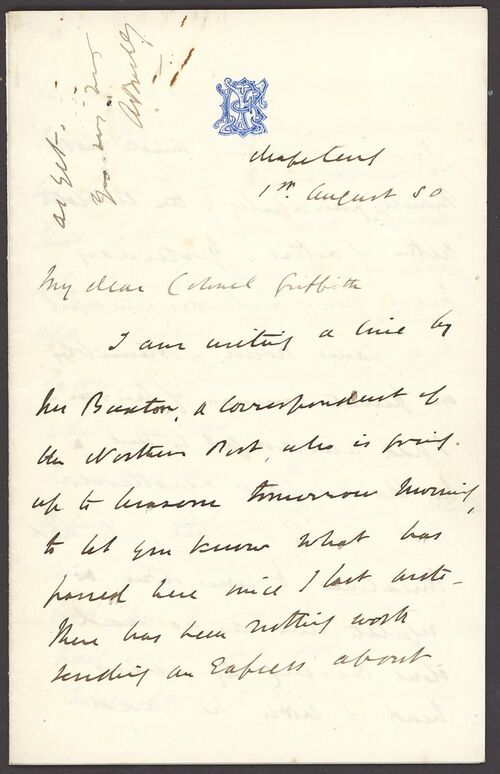 Mafeteng
1st August 80
My dear Colonel Griffith
I am writing a line by
Mr Buxton, a Correspondent of
the Northern Post, who is going
up to Maseru tomorrow morning,
to let you know what has
passed here since I last wrote -
There has been nothing worth
sending an Express about
as yet.
ABarkly